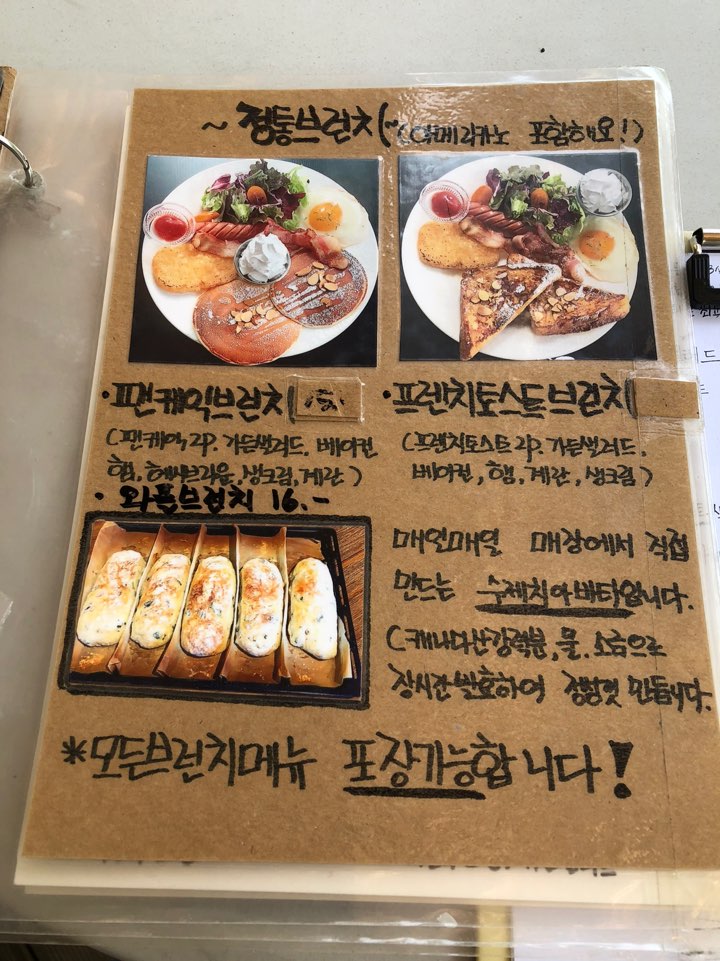 ~ 정통브런치 (아메리카노 포함해요!)
· 팬케익브런치
(팬케익 2p. 가든샐러드. 베이컨.
햄, 해시브라운, 생크림, 계란)
· 와플브런치 16.-
· 프렌치토스트브런치
(프렌치토스트 2p. 가든샐러드.
베이컨, 햄, 계란, 생크림)
매일매일 매장에서 직접
만드는 수제치아바타입니다.
(캐나다산강력분, 물, 소금으로
장시간 발효하여 정성껏 만듭니다.
*모든브런치메뉴 포장가능합니다!